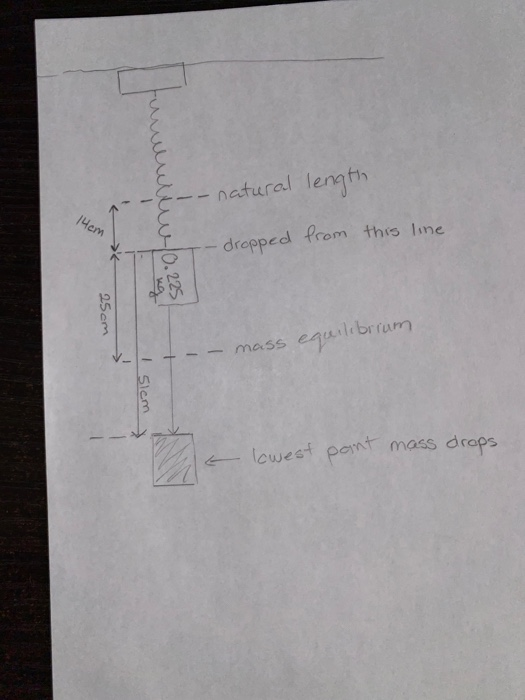 natural length
14cm
dropped from this line
0.225
kg
25cm
mass equilibrium
51cm
lowest point mass drops